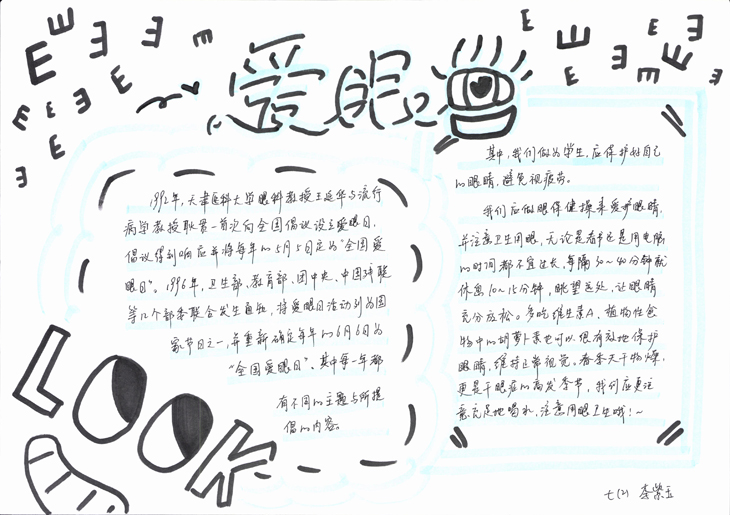 爱眼日
E E E E E E E E E E E
E E E E E E E E E
1992年，天津医科大学眼科教授王延华与流行
病学教授耿贯一首次向全国倡议设立爱眼日，
倡议得到响应并将每年的5月5日定为“全国爱
眼日”。1996年，卫生部、教育部、团中央、中国残联
等12个部委联合发出通知，将爱眼日活动列为国
家节日之一，并重新确定每年的6月6日为
“全国爱眼日”、其中每一年都
有不同的主题与所提
倡的内容。
LOOK
其中，我们做为学生，应保护好自己
的眼睛，避免视疲劳。
我们应做眼保健操来爱护眼睛，
并注意卫生用眼，无论是看书还是用电脑
的时间都不宜过长，每隔30～40分钟就
休息10～15分钟，眺望远处，让眼睛
充分放松。多吃维生素A，植物性食
物中的胡萝卜素也可以很有效地保护
眼睛，维持正常视觉，春季天干物燥，
更是干眼症的高发季节，我们应更注
意充足地喝水，注意用眼卫生哦！～
七(2) 李荣玉